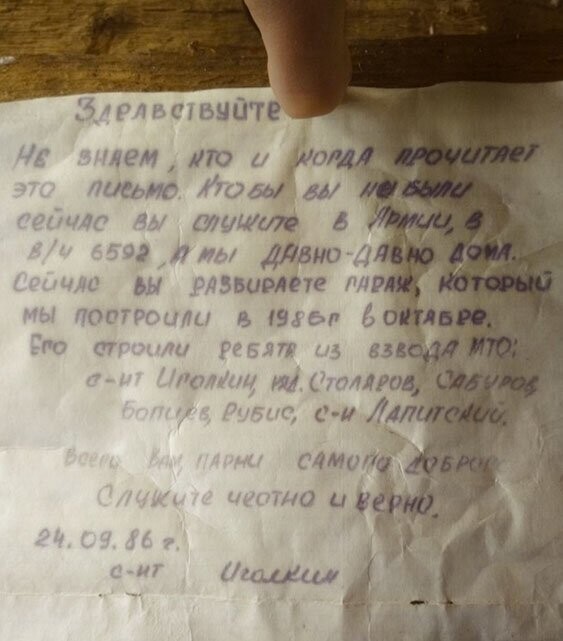 Здравствуйте
Не знаем, кто и когда прочитает
это письмо. Кто бы вы не были
сейчас вы служите в Армии, в
в/ч 6592, а мы давно-давно дома.
Сейчас вы разбираете гараж, который
мы построили в 1986г в октабре.
Его строили ребята из взвода МТО:
с-нт Иголкин, Столаров, Сабуров,
Бопиев, Рубис, с-н Лапитский.
Всего вам парни самого доброг
Служите честно и верно.
24.09.86 г.
с-нт Иголкин